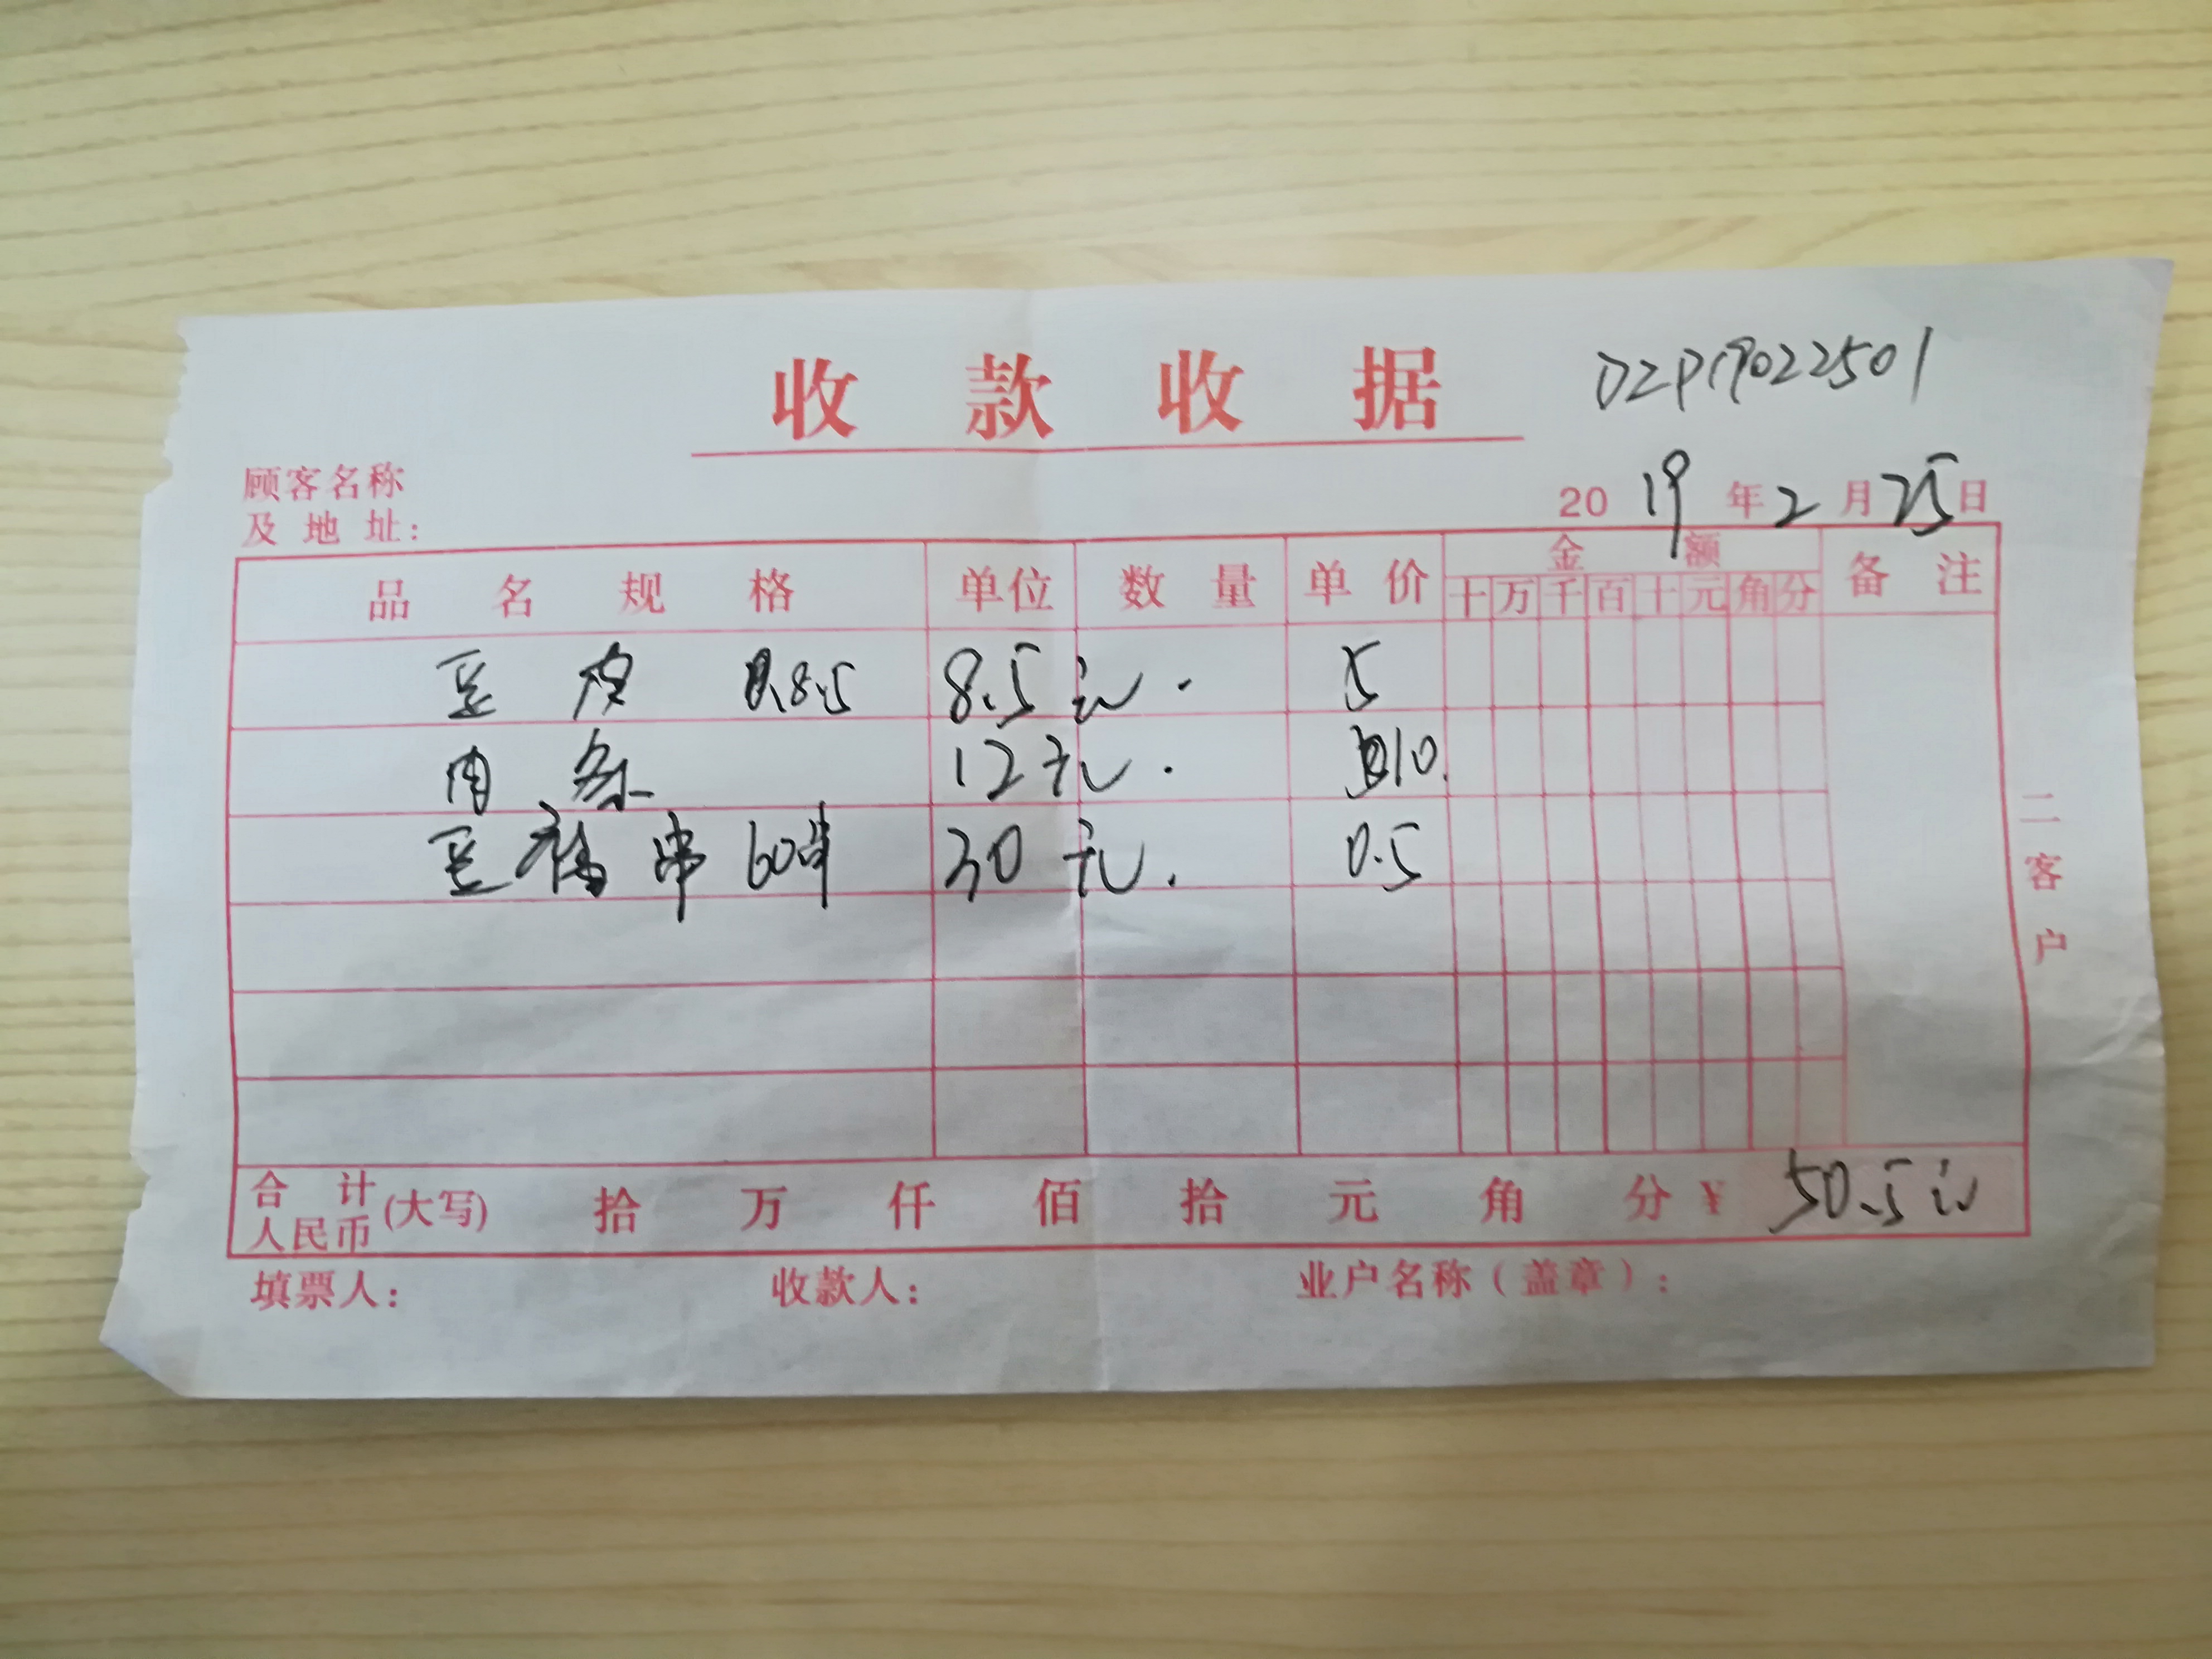 收款收据
DZP19022501
顾客名称
及地址：
2019年2月25日
品名规格 单位 数量 单价 金额 备注
十万千百十元角分
豆皮 8.5 8.5元. 5
肉 12元. 10.
豆腐串 60串 30元. 0.5
二客户
合计
人民币
(大写) 拾 万 仟 佰 拾 元 角 分 ¥ 50.5元
填票人： 收款人： 业户名称（盖章）：